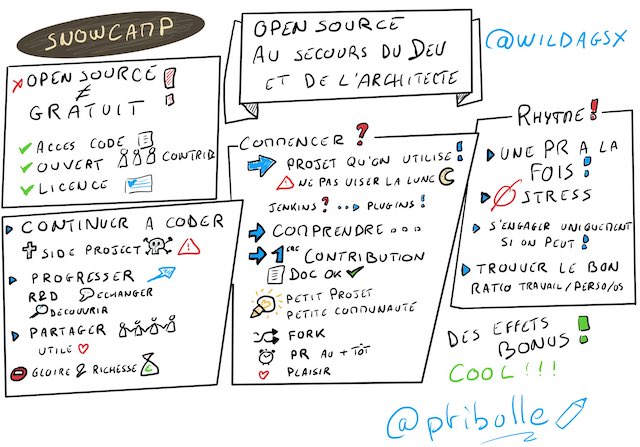 SNOWCAMP
OPEN SOURCE
AU SECOURS DU DEV
ET DE L'ARCHITECTE
@WILDAGSX
OPEN SOURCE
≠
GRATUIT !
ACCES CODE
OUVERT CONTRIB
LICENCE
CONTINUER A CODER
SIDE PROJECT
PROGRESSER
R&D ECHANGER
DÉCOUVRIR
PARTAGER
UTILE
GLOIRE & RICHESSE
COMMENCER ?
PROJET QU'ON UTILISE !
NE PAS VISER LA LUNE
JENKINS ? ... PLUGINS !
COMPRENDRE ...
1ERE CONTRIBUTION
DOC OK
PETIT PROJET
PETITE COMMUNAUTÉ
FORK
PR AU + TÔT
PLAISIR
RHYTME !
UNE PR A LA
FOIS !
STRESS
S'ENGAGER UNIQUEMENT
SI ON PEUT !
TROUVER LE BON
RATIO TRAVAIL/PERSO/OS
DES EFFETS
BONUS !
COOL !!!
@ptibolle